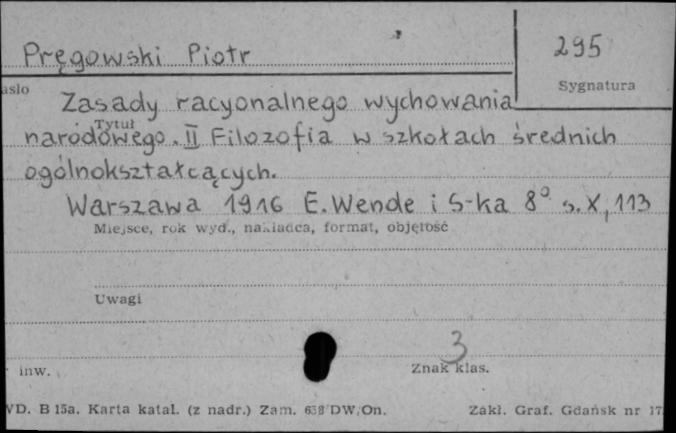 Pręgowski Piotr
295
Sygnatura
asło
Zasady racyonalnego wychowania
Tytuł
narodowego. II Filozofia w szkołach średnich
ogólnokształcących.
Warszawa 1916 E. Wende i S-ka 8° s. X, 113
Miejsce, rok wyd., nakładca, format, objętość
Uwagi
3
inw.
Znak klas.
VD. B 15a. Karta katal. (z nadr.) Zam. DW/On.
Zakł. Graf. Gdańsk nr 17